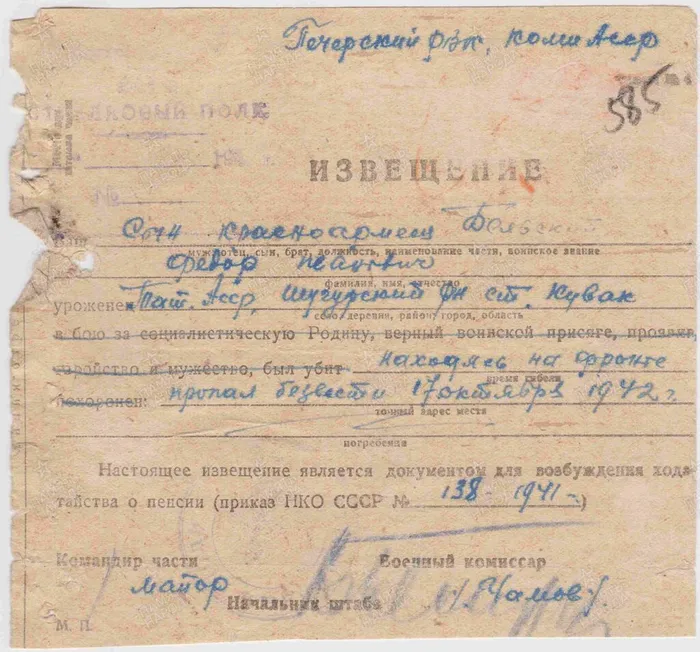 Печерский РВК, Коми Асср
585
ИЗВЕЩЕНИЕ
Ваш Сын красноармеец Бельский
муж, отец, сын, брат, должность, наименование части, воинское звание
Федор Иванович
фамилия, имя, отчество
уроженец Тат. Асср, Шугурский рн ст. Кувак
село деревня, район, город, область
в бою за социалистическую Родину, верный воинской присяге, проявив
геройство и мужество, был убит находясь на фронте
время гибели
похоронен: пропал безвести 17 октября 1942 г.
точный адрес места
погребения
Настоящее извещение является документом для возбуждения хода-
тайства о пенсии (приказ НКО СССР № 138-1941-)
Командир части Военный комиссар
майор /Чамов/
Начальник штаба
М. П.